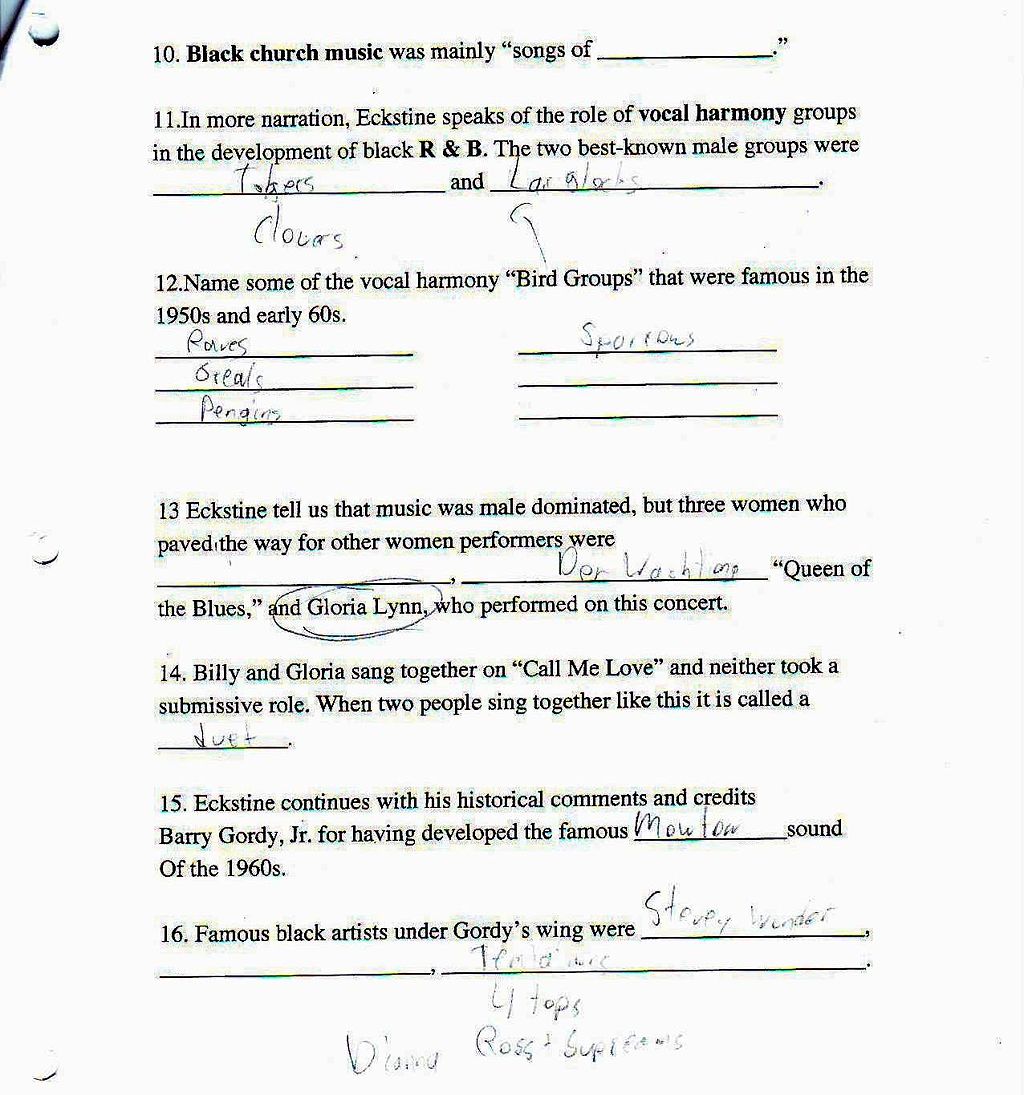 10. Black church music was mainly “songs of ____________.”
11.In more narration, Eckstine speaks of the role of vocal harmony groups
in the development of black R & B. The two best-known male groups were
and
Clovers
12.Name some of the vocal harmony “Bird Groups” that were famous in the
1950s and early 60s.
Raves
Oreals
Pengins
13 Eckstine tell us that music was male dominated, but three women who
paved the way for other women performers were
____________, ____________ “Queen of
the Blues,” and Gloria Lynn, who performed on this concert.
14. Billy and Gloria sang together on “Call Me Love” and neither took a
submissive role. When two people sing together like this it is called a
duet.
15. Eckstine continues with his historical comments and credits
Barry Gordy, Jr. for having developed the famous Mowtow sound
Of the 1960s.
16. Famous black artists under Gordy’s wing were Stevey Wonder,
____________, ____________.
4 tops
Dianna Ross + Supreams